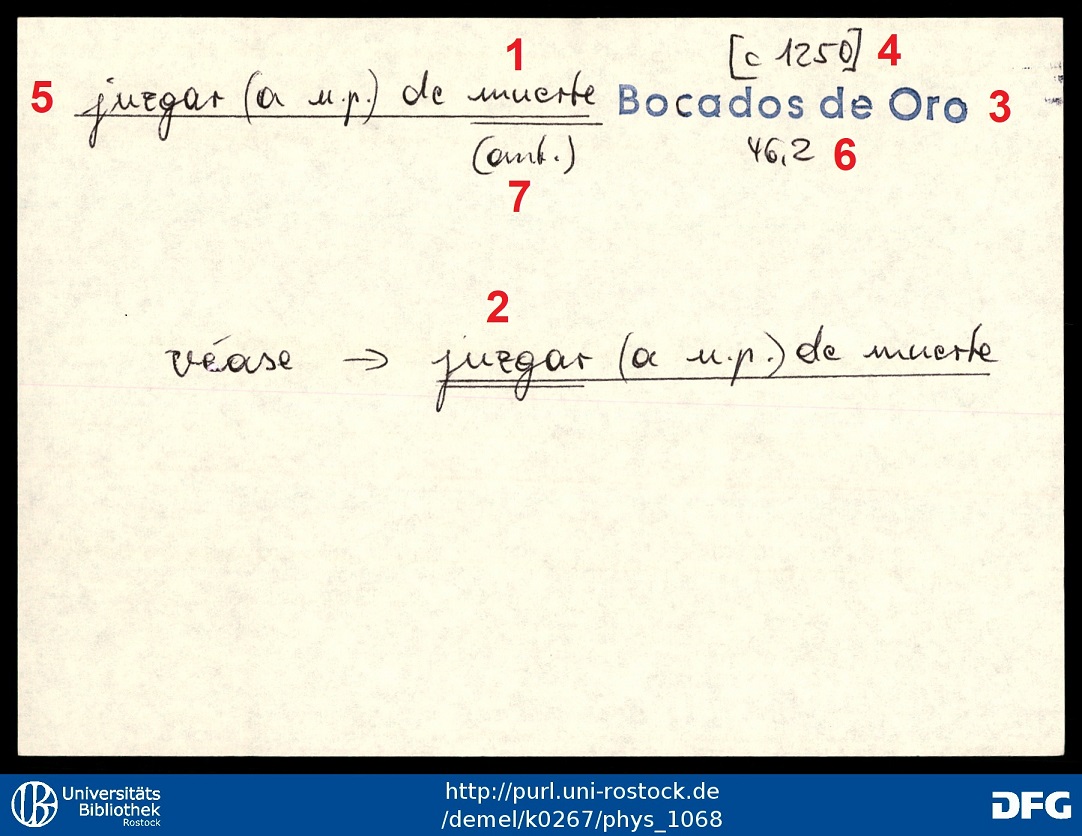 1
[c 1250] 4
5 juzgar (a u.p.) de muerte Bocados de Oro 3
(ant.) 46,2 6
7
2
véase → juzgar (a u.p.) de muerte
Universitäts
Bibliothek
Rostock
http://purl.uni-rostock.de
/demel/k0267/phys_1068
DFG